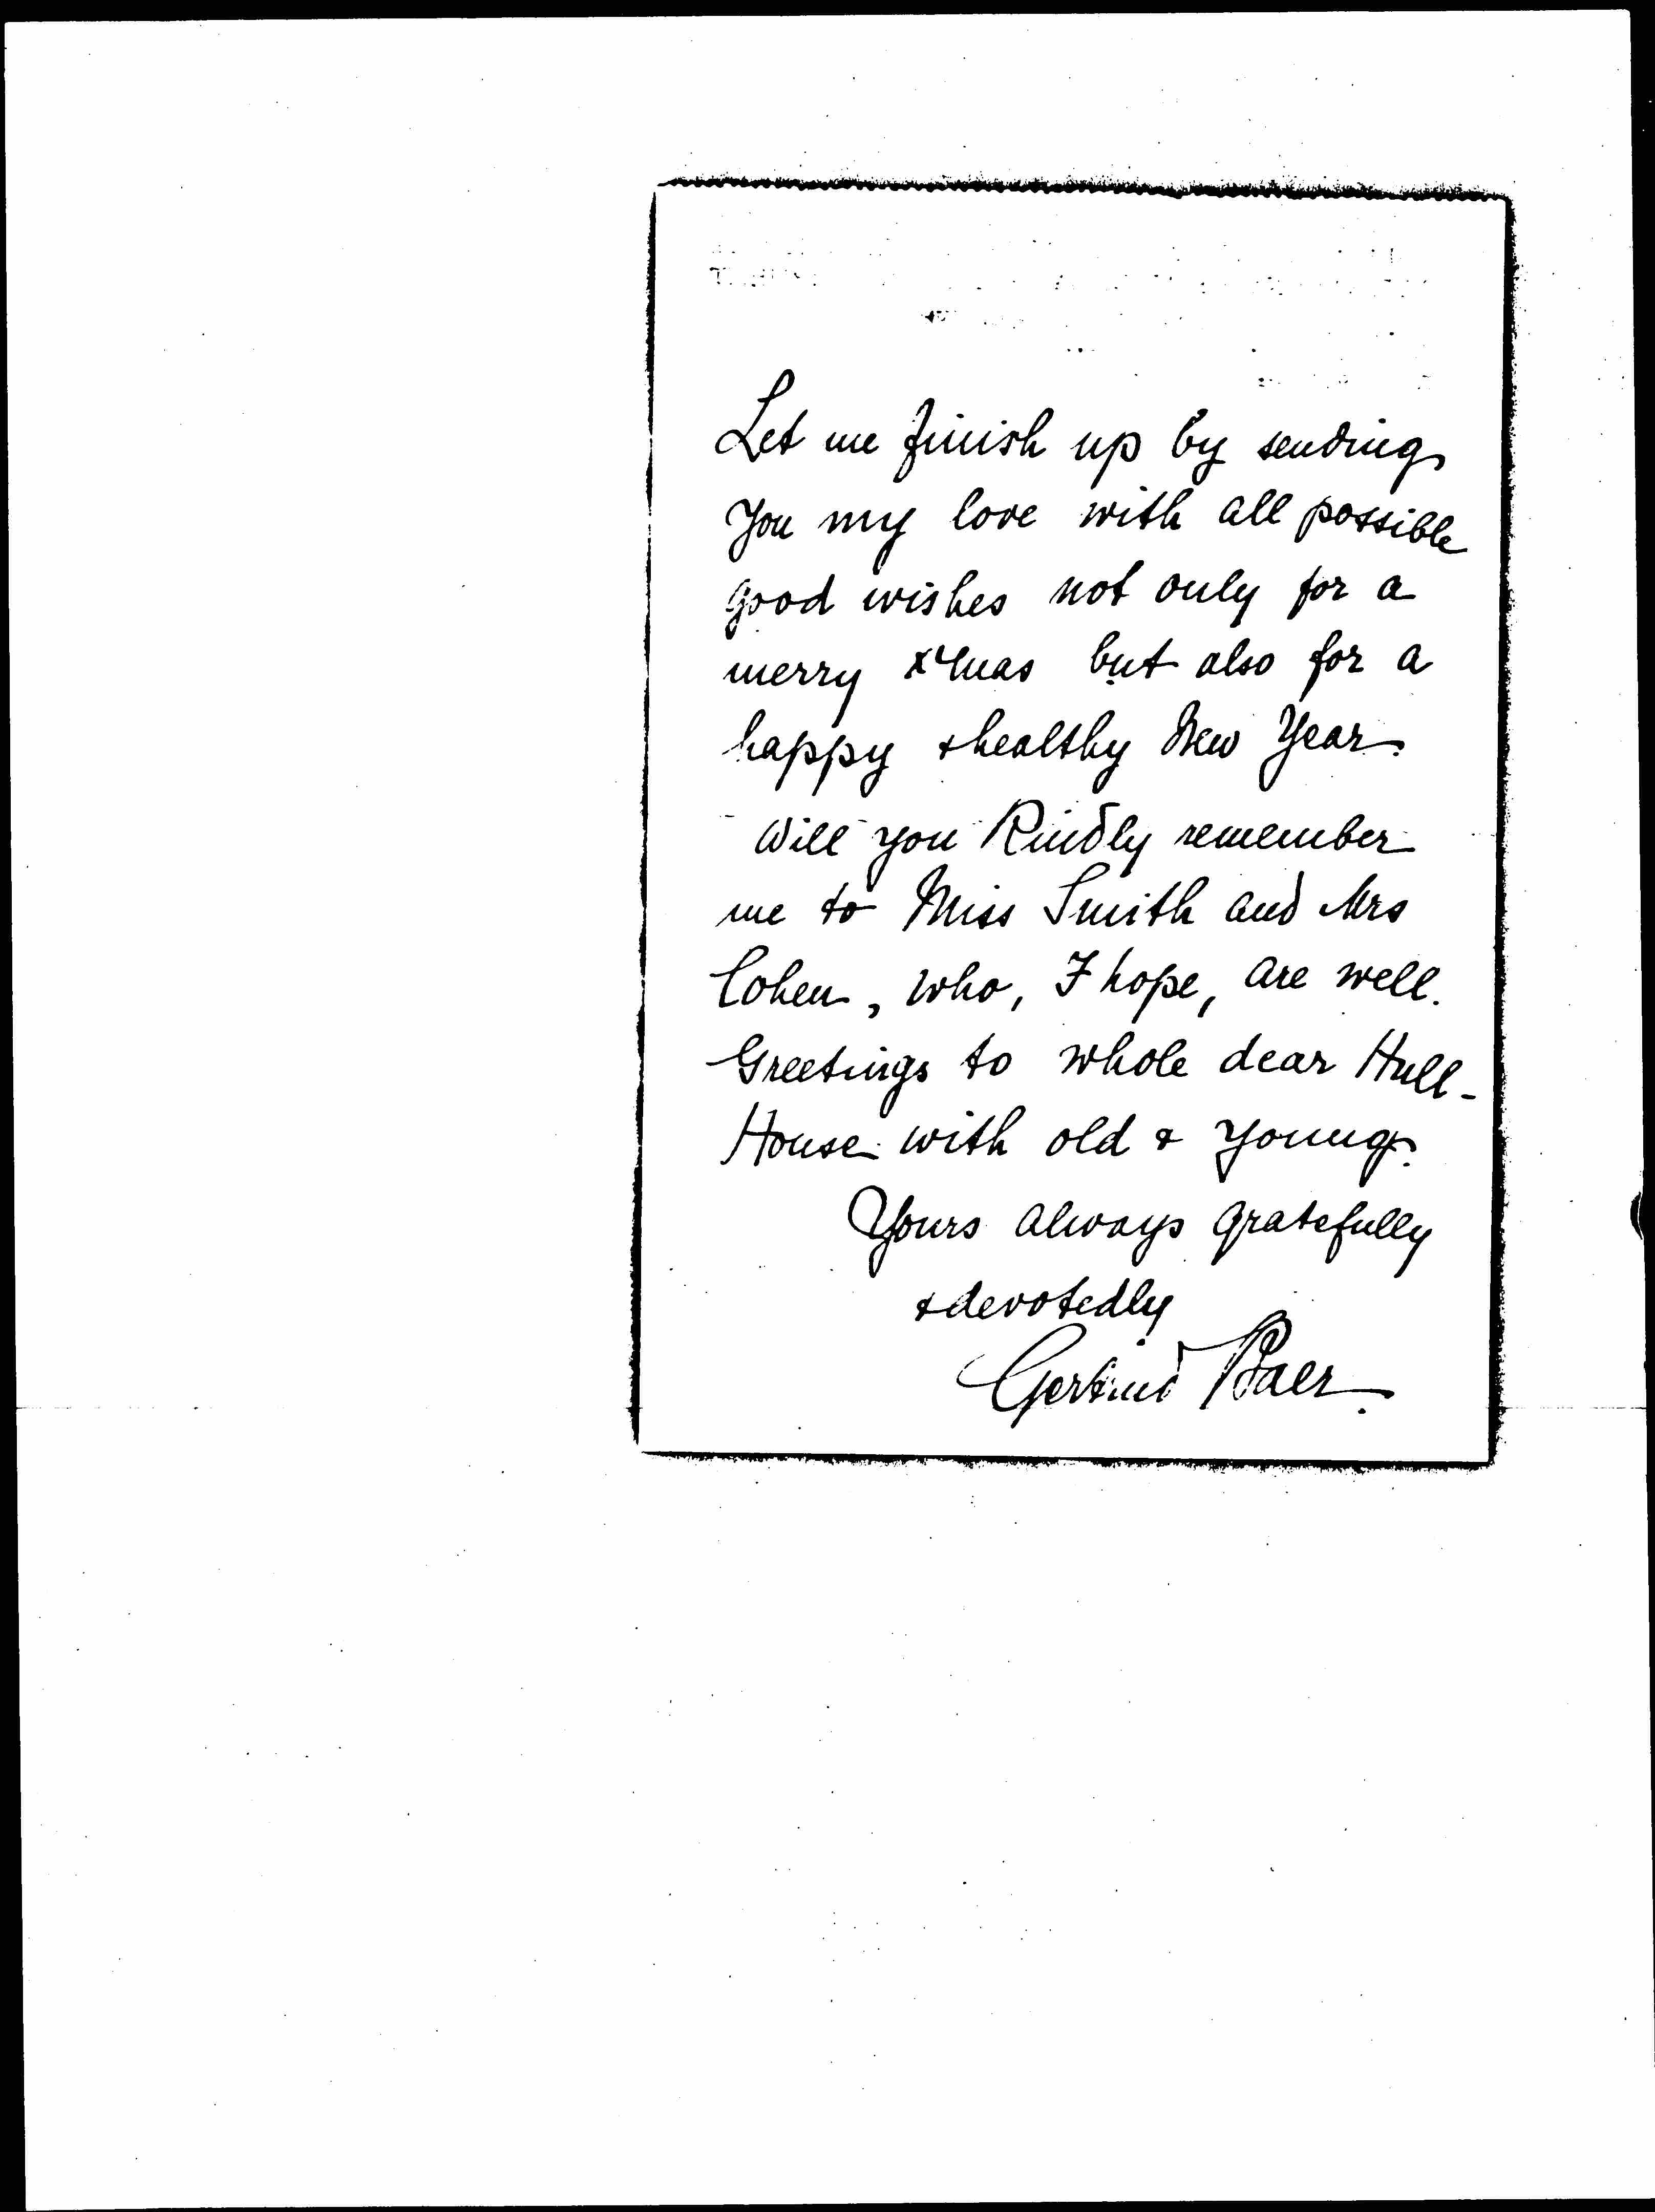 Let me finish up by sending
you my love with all possible
good wishes not only for a
merry x'mas but also for a
happy & healthy New Year.
Will you kindly remember
me to Miss Smith and Mrs
Cohen, who, I hope, are well.
Greetings to whole dear Hull-
House with old & young.
Yours always gratefully
& devotedly
Gertrud Baer.